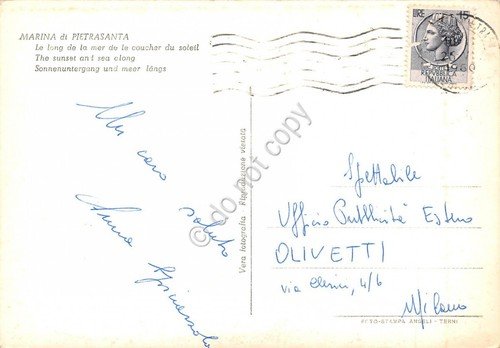 MARINA di PIETRASANTA
Le long de la mer de le coucher du soleil
The sunset ant sea along
Sonnenuntergang und meer längs
LIRE 15
REPUBBLICA
ITALIANA
25
1960
Un caro saluto
Anna
Vera fotografia - Riproduzione vietata
do not copy
Spettabile
Ufficio Pubblicità Estero
OLIVETTI
via Clerici, 4/6
Milano
FOTO-STAMPA ANGELI - TERNI